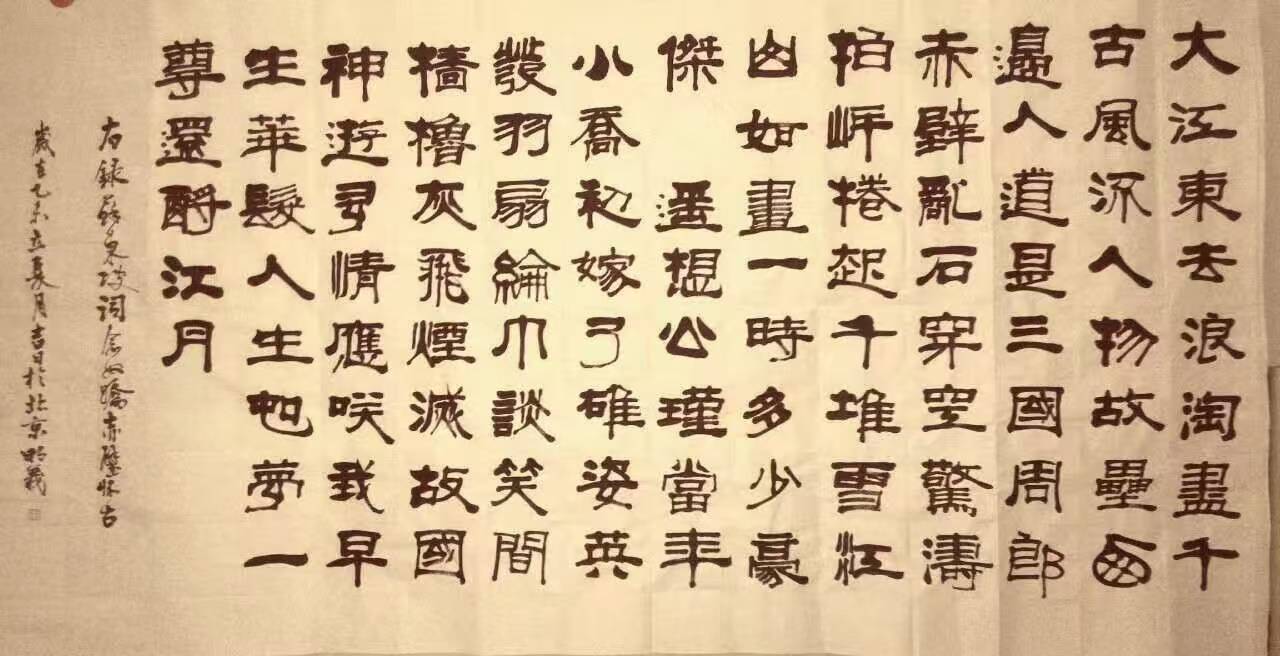 大江東去浪淘盡千
古風流人物故壘西
邊人道是三國周郎
赤壁亂石穿空驚濤
拍岸捲起千堆雪江
山如畫一時多少豪
傑 遥想公瑾當年
小喬初嫁了雄姿英
發羽扇綸巾談笑間
檣櫓灰飛煙滅故國
神遊多情應咲我早
生華髮人生如夢一
尊還酹江月
右録蘇東坡詞念奴嬌赤壁怀古
歲在乙未立夏月吉日於北京